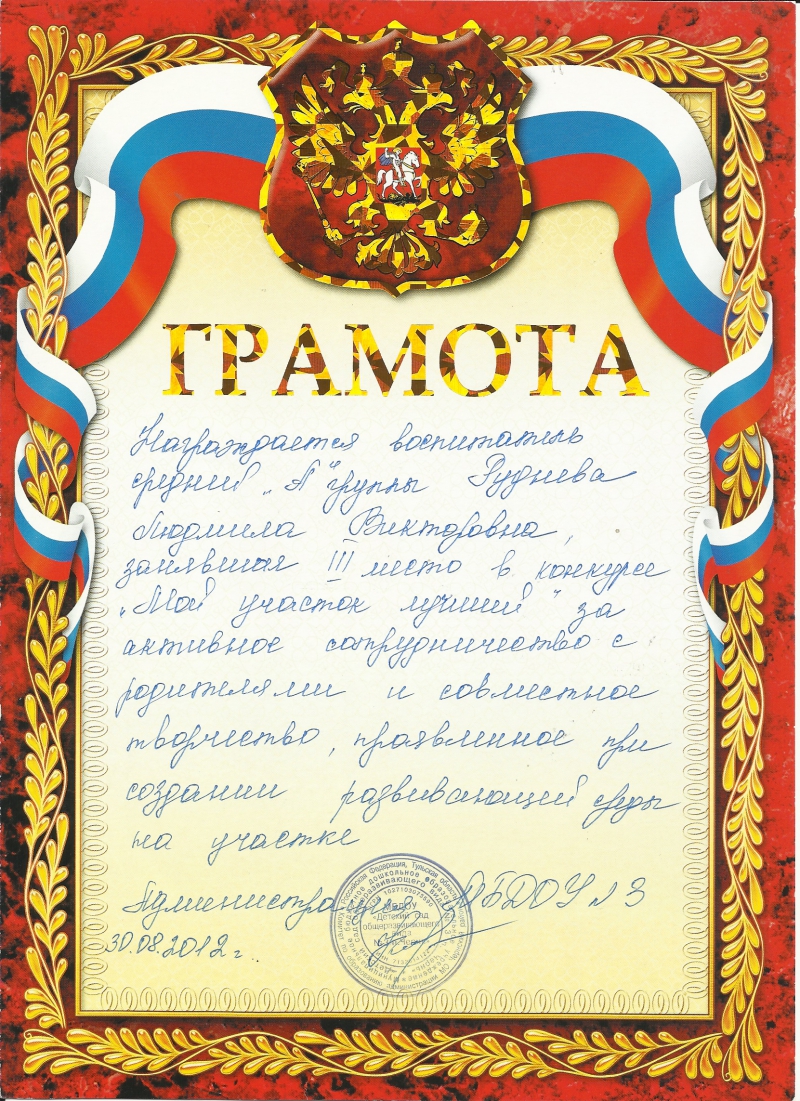 ГРАМОТА
Награждается воспитатель
средней „А" группы Руднева
Людмила Викторовна,
занявшая III место в конкурсе
„Мой участок лучший" за
активное сотрудничество с
родителями и совместное
творчество, проявленное при
создании развивающей среды
на участке
Администрация МБДОУ №3
30.08.2012 г.
Российская Федерация, Тульская область
МБДОУ
«Детский сад
общеразвивающего
вида